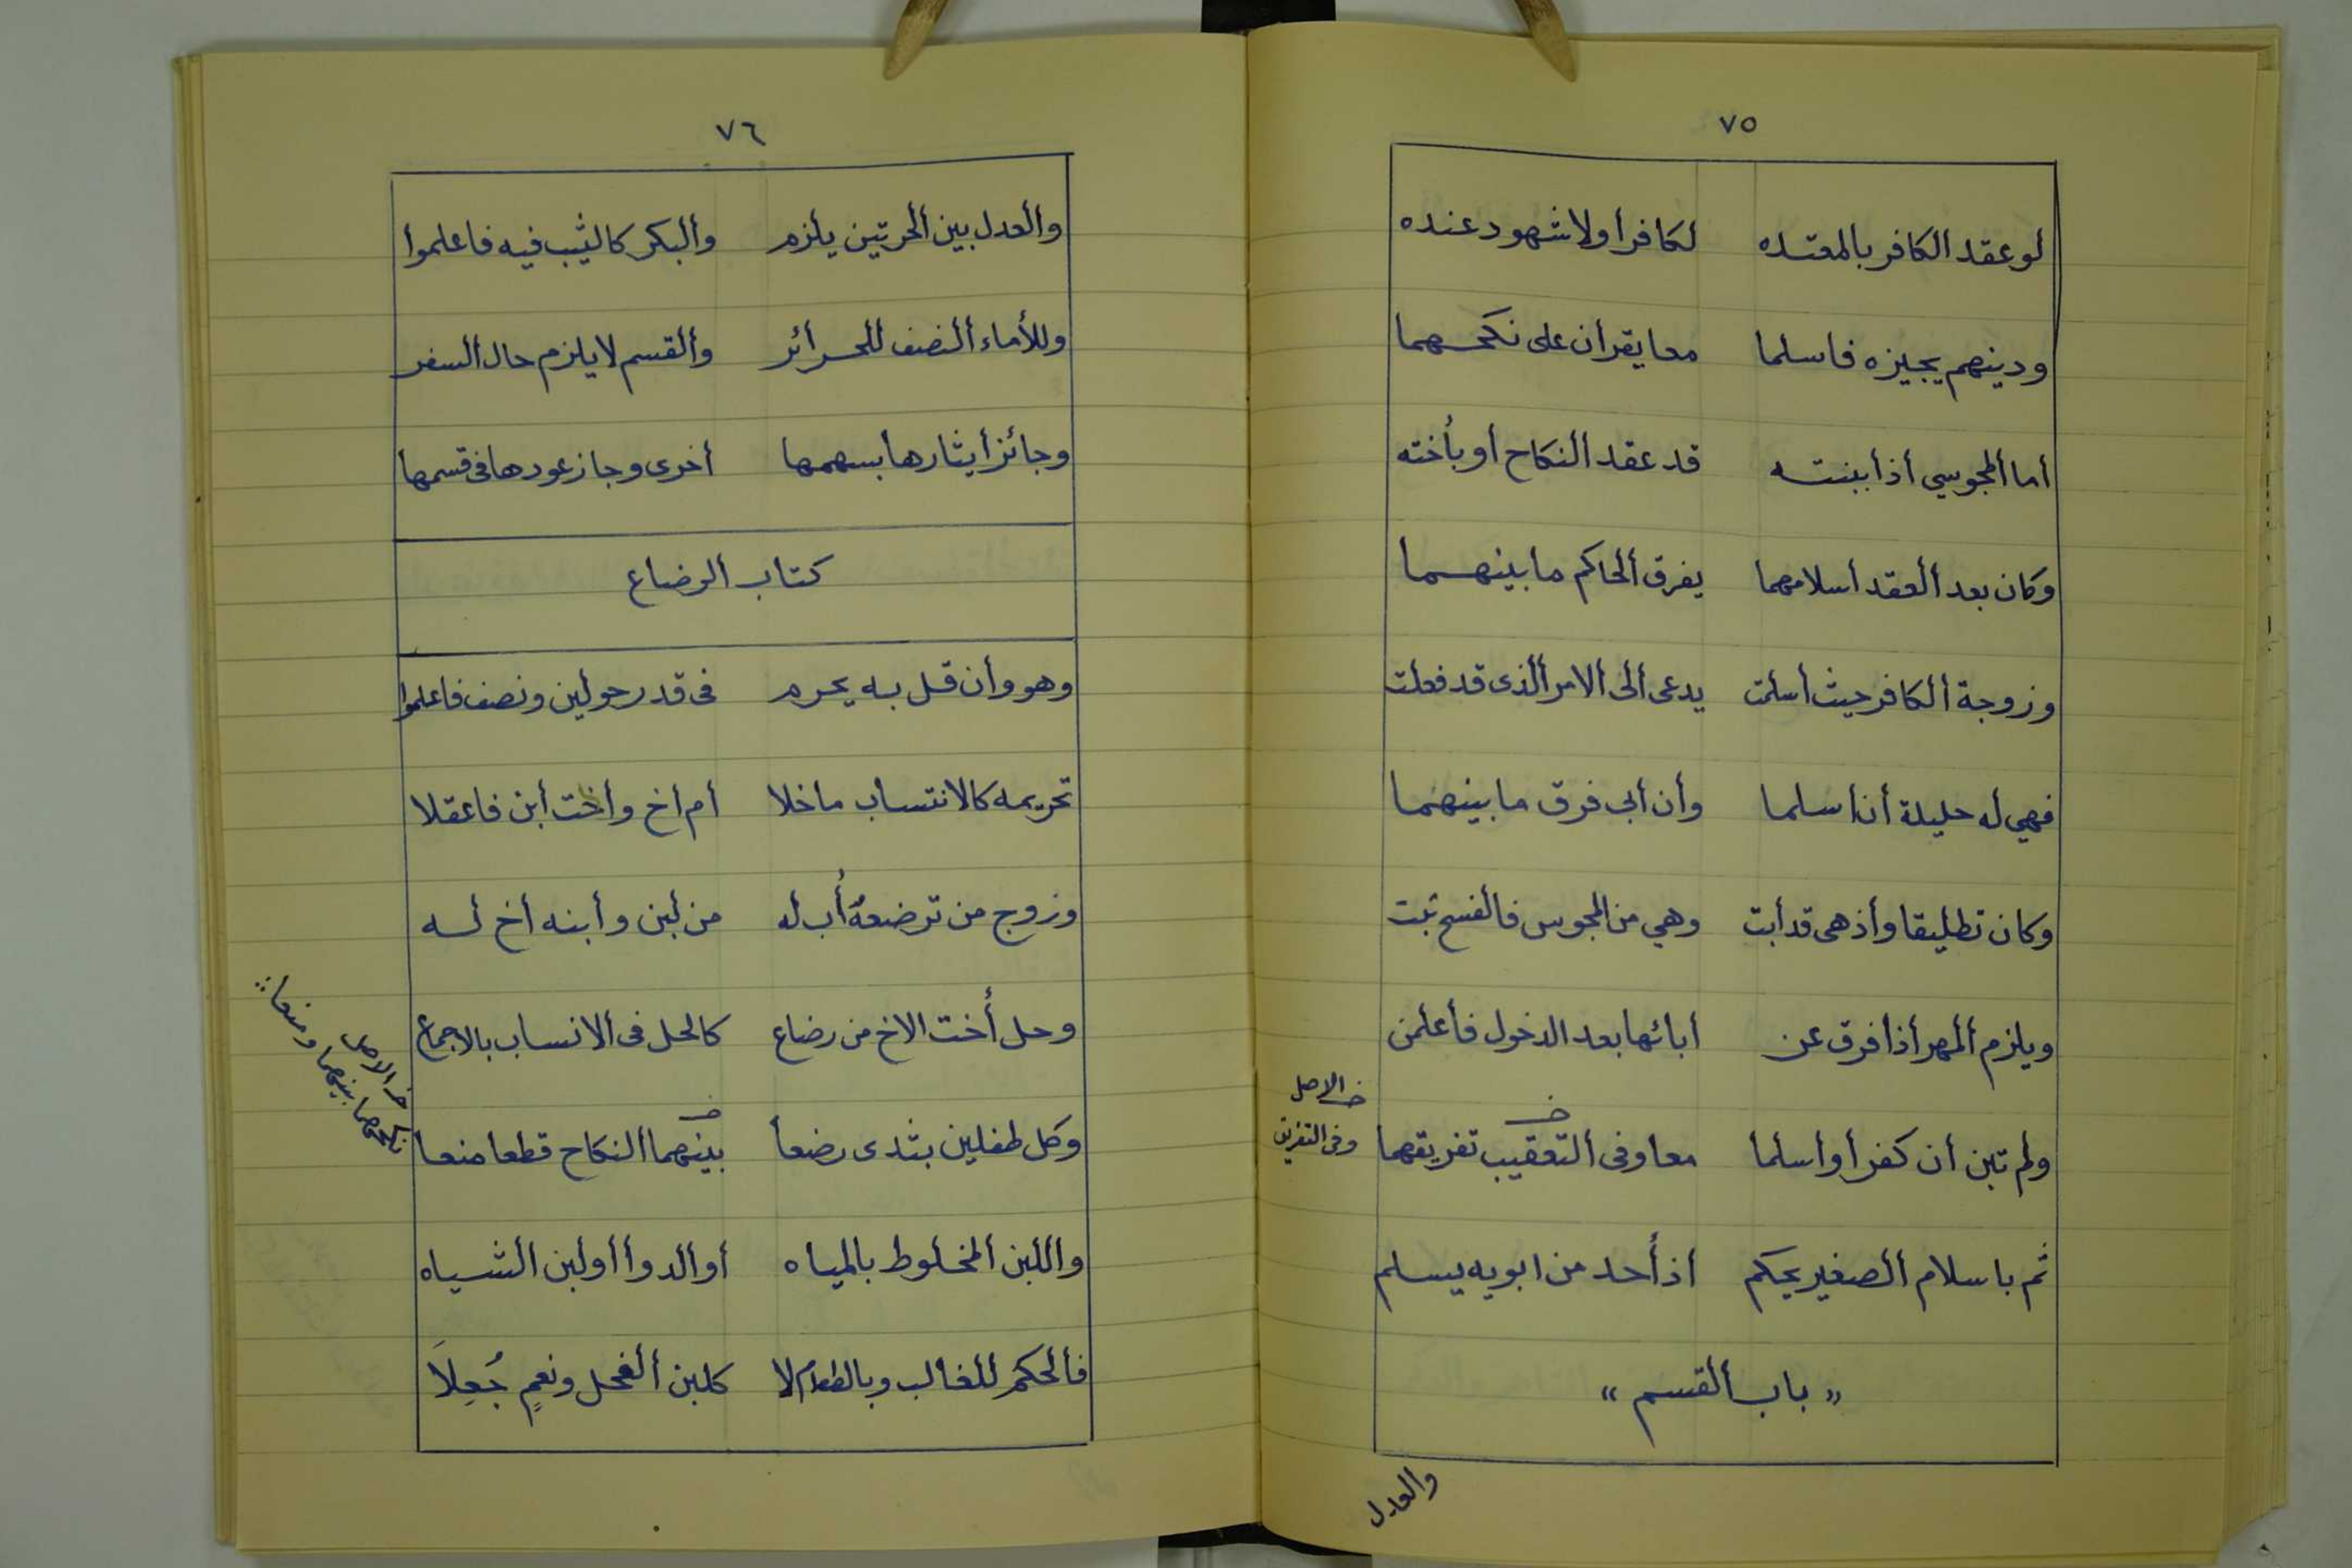 ٧٥
لو عقد الكافر بالمعتده لكافر أولا شهود عنده
ودينهم يجيزه فاسلما معا يقران على نكحهما
أما ألمجوسي أذا ببنته قد عقد ألنكاح أو بأخته
وكان بعد ألعقد أسلامهما يفرق ألحاكم ما بينهما
وزوجة ألكافر حيث أسلمت يدعى ألى ألامر ألذى قد فعلت
فهي له حليلة أن أسلما وأن أبى فرق ما بينهما
وكان تطليقا وأذ هى قد أبت وهي من المجوس فالفسخ ثبت
ويلزم ألمهر أذا فرق عن أبائها بعد الدخول فأعلمن
ولم تبن أن كفرا وأسلما معا وفى ألتعقيب تفريقهما
خ الاصل
وفى التفريق
ثم باسلام ألصغير يحكم اذ أحد من ابويه يسلم
« باب ألقسم »
والعدل
٧٦
وألعدل بين ألحرتين يلزم وألبكر كالثيب فيه فاعلموا
وللأماء ألنصف للحرائر وألقسم لا يلزم حال ألسفر
وجائز أيثارها بسهمها أخرى وجاز عودها فى قسمها
كتاب الرضاع
وهو وأن قل به يحرم فى قدر حولين ونصف فاعلموا
تحريمه كالانتساب ما خلا أم اخ وأخت أبن فاعقلا
وزوج من ترضعه أب له من لبن وأبنه أخ له
وحل أخت الاخ من رضاع كالحل فى ألانساب بالاجماع
وكل طفلين بثدى رضعا بينهما ألنكاح قطعا منعا
خ الاصل
نكاحهما بينهما ومنعا
واللبن ألمخلوط بالمياه أو ألدوا أو لبن ألشياه
فألحكم للغالب وبالطعام لا كلبن ألفحل ونعم جُعِلَا